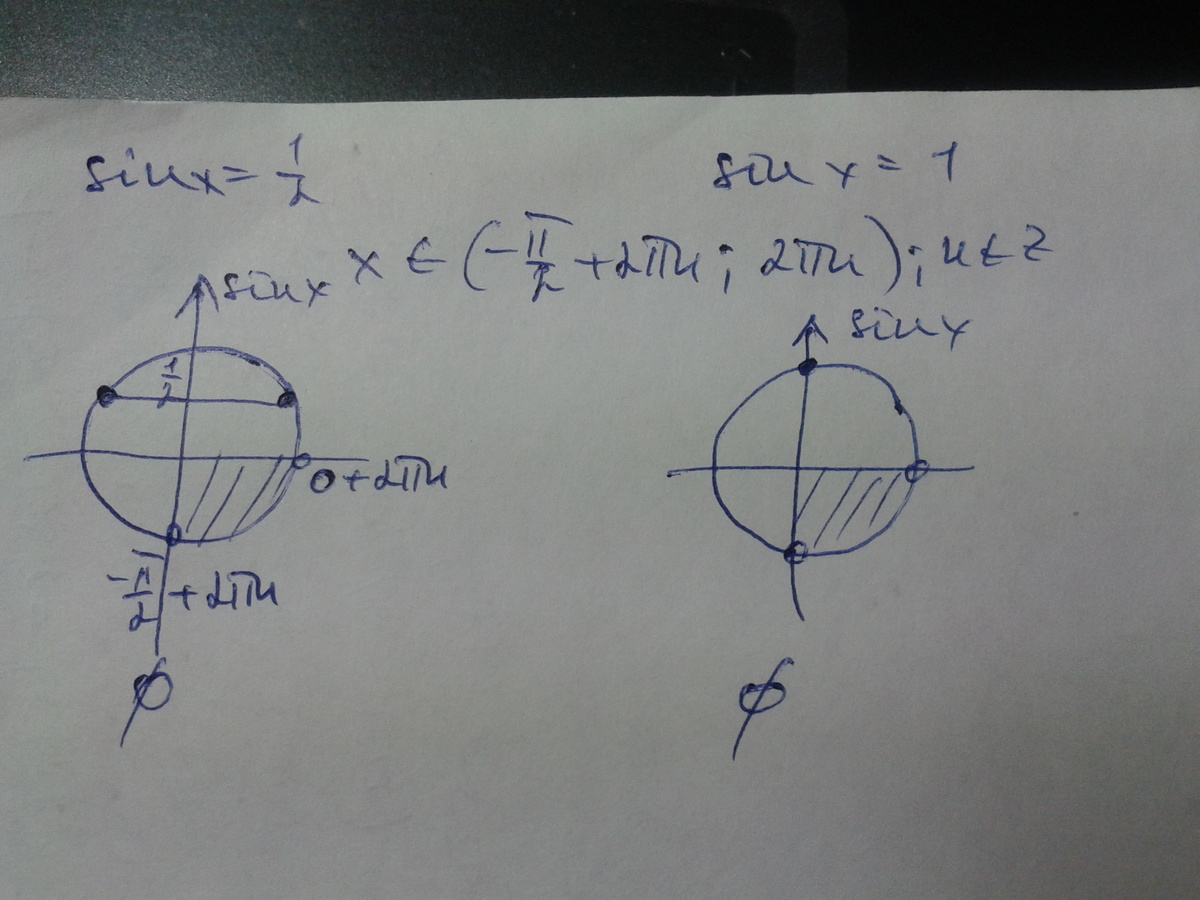 sin x = 1/2
sin x = 1
x ∈ (-π/2 + 2πn; 2πn); n ∈ Z
sin x
sin x
1/2
0 + 2πn
-π/2 + 2πn
∅
∅